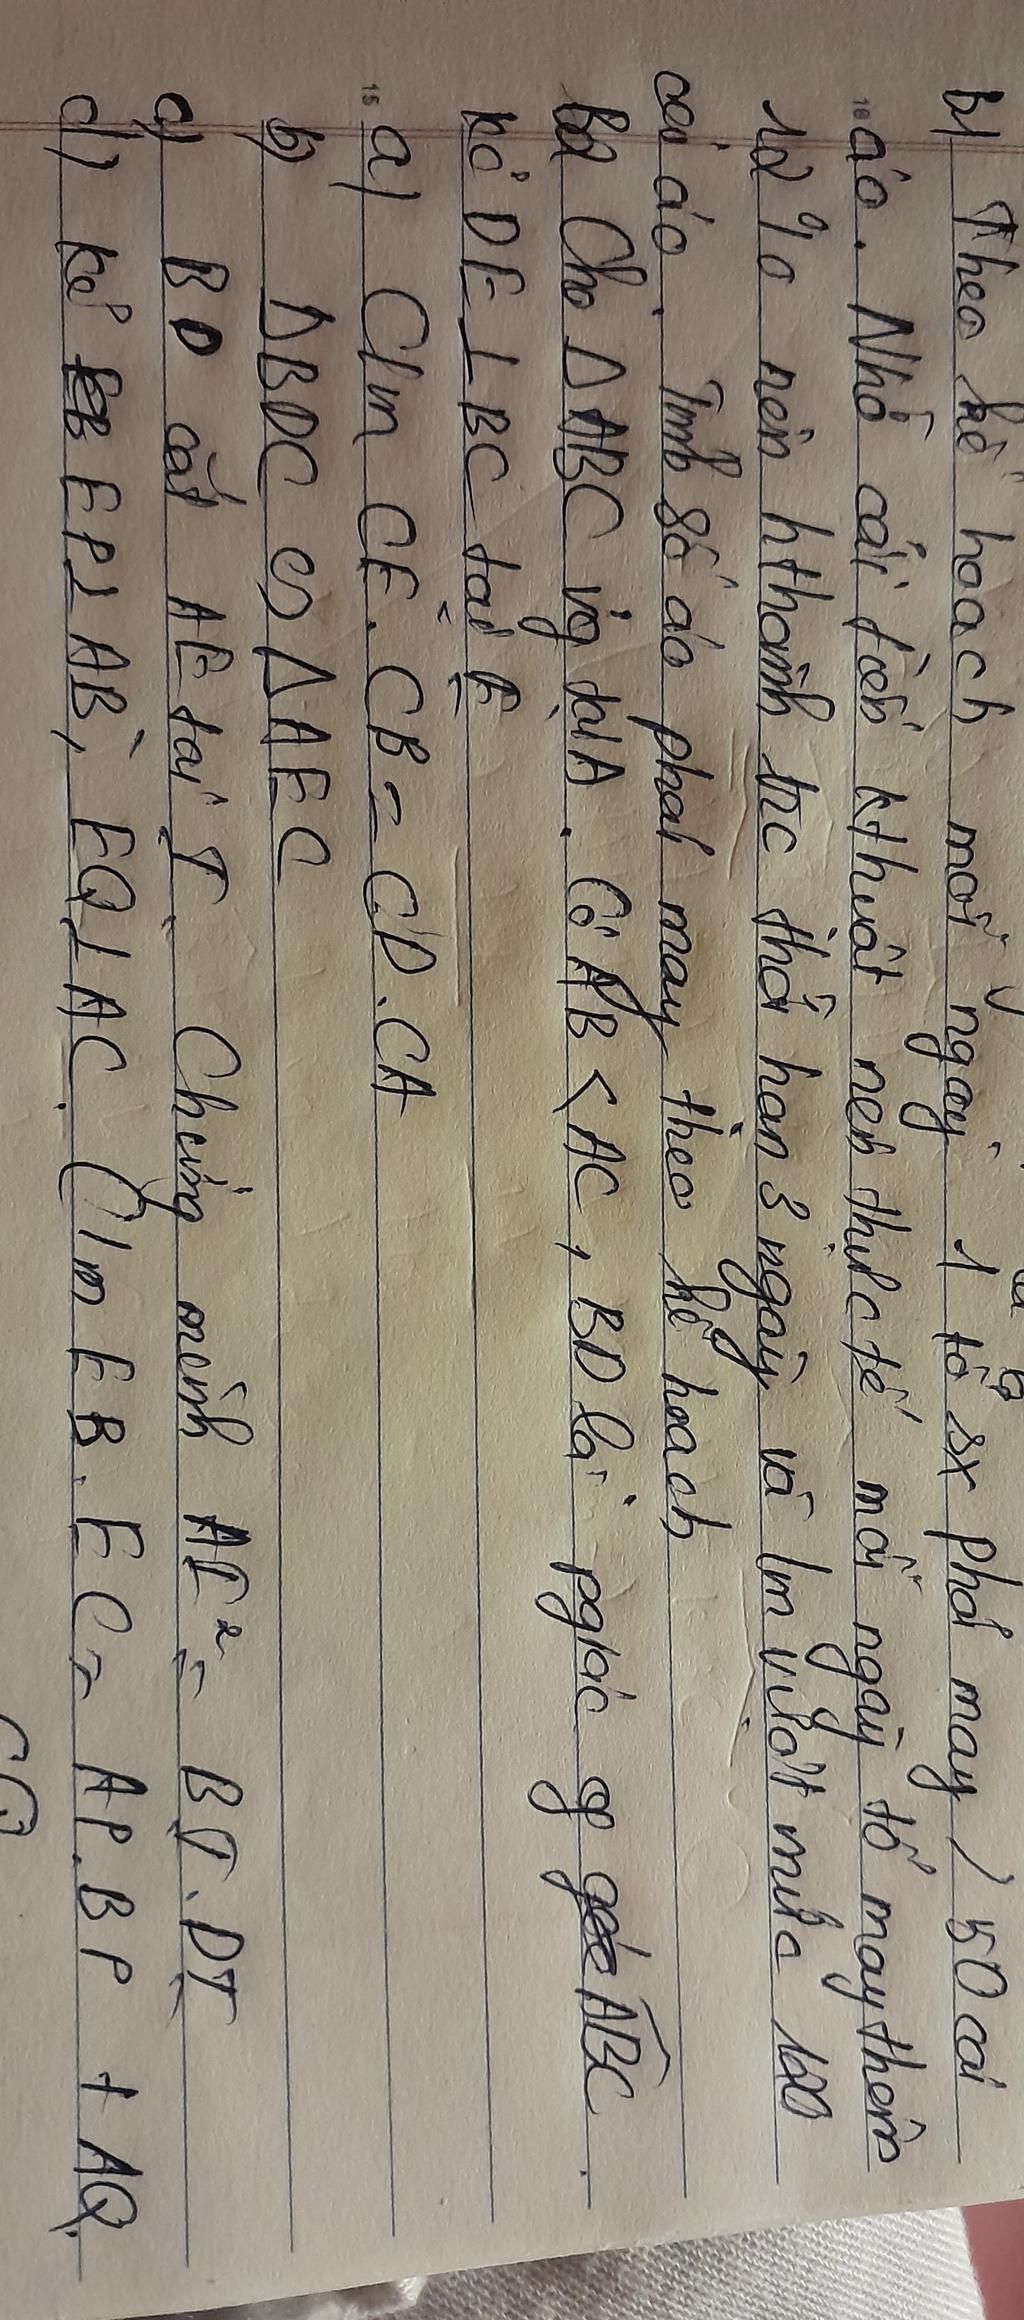 b) Theo kế hoạch mỗi ngày 1 tổ sx phải may 150 cái
áo. Nhờ cải tiến kthuật nên thực tế mỗi ngày tổ may thêm
12% nên hthành trc thời hạn 3 ngày và lm vượt mức 120
cái áo. Tính số áo phải may theo kế hoạch
b2 Cho Δ ABC vg tại A. Có AB < AC, BD là pgiác g ABC.
kẻ DE ⊥ BC tại E
a) C/m CE.CB = CD.CA
b) ΔBDC ∽ ΔAEC
c) BD cắt AE tại T. Chứng minh AE² = BT.DT
d) kẻ EP⊥AB, EQ⊥AC. C/m EB.EC = AP.BP + AQ.
CQ